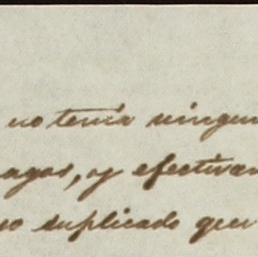 no tenía ningun
agar, y efectivam
so duplicado que